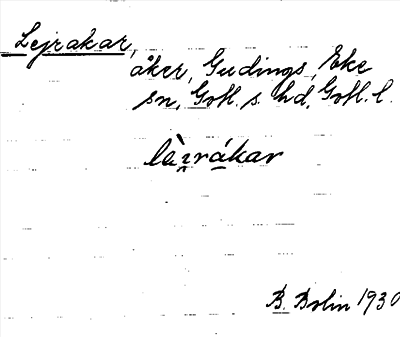 Lejrakar,
åker, Gudings, Eke
sn, Gotl. s. hd, Gotl. l.
lài̯rákar
B. Bolin 1930